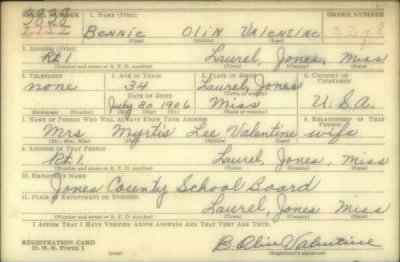 SERIAL NUMBER 1. NAME (Print) ORDER NUMBER
Bennie Olin Valentine 3278
(First) (Middle) (Last)
2. ADDRESS (Print)
Rt 1 Laurel, Jones, Miss
(Number and street or R. F. D. number) (Town) (County) (State)
3. TELEPHONE 4. AGE IN YEARS 5. PLACE OF BIRTH 6. COUNTRY OF CITIZENSHIP
none 34 Laurel, Jones
DATE OF BIRTH (Town or county)
July 30 1906 Miss U.S.A.
(Exchange) (Number) (Mo.) (Day) (Yr.) (State or country)
7. NAME OF PERSON WHO WILL ALWAYS KNOW YOUR ADDRESS 8. RELATIONSHIP OF THAT PERSON
Mrs Myrtis Lee Valentine wife
(Mr., Mrs., Miss) (First) (Middle) (Last)
9. ADDRESS OF THAT PERSON
Rt 1. Laurel, Jones, Miss
(Number and street or R. F. D. number) (Town) (County) (State)
10. EMPLOYER'S NAME
Jones County School Board
11. PLACE OF EMPLOYMENT OR BUSINESS
Laurel, Jones Miss
(Number and street or R. F. D. number) (Town) (County) (State)
I AFFIRM THAT I HAVE VERIFIED ABOVE ANSWERS AND THAT THEY ARE TRUE.
REGISTRATION CARD
D. S. S. Form 1 (over) B. Olin Valentine
(Registrant's signature)